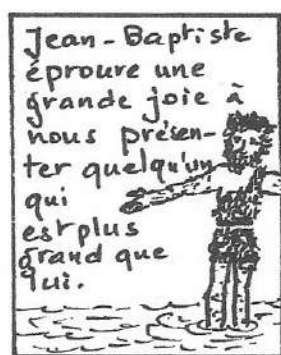 Jean-Baptiste
éprouve une
grande joie à
nous présen-
ter quelqu'un
qui
est plus
grand que
lui.